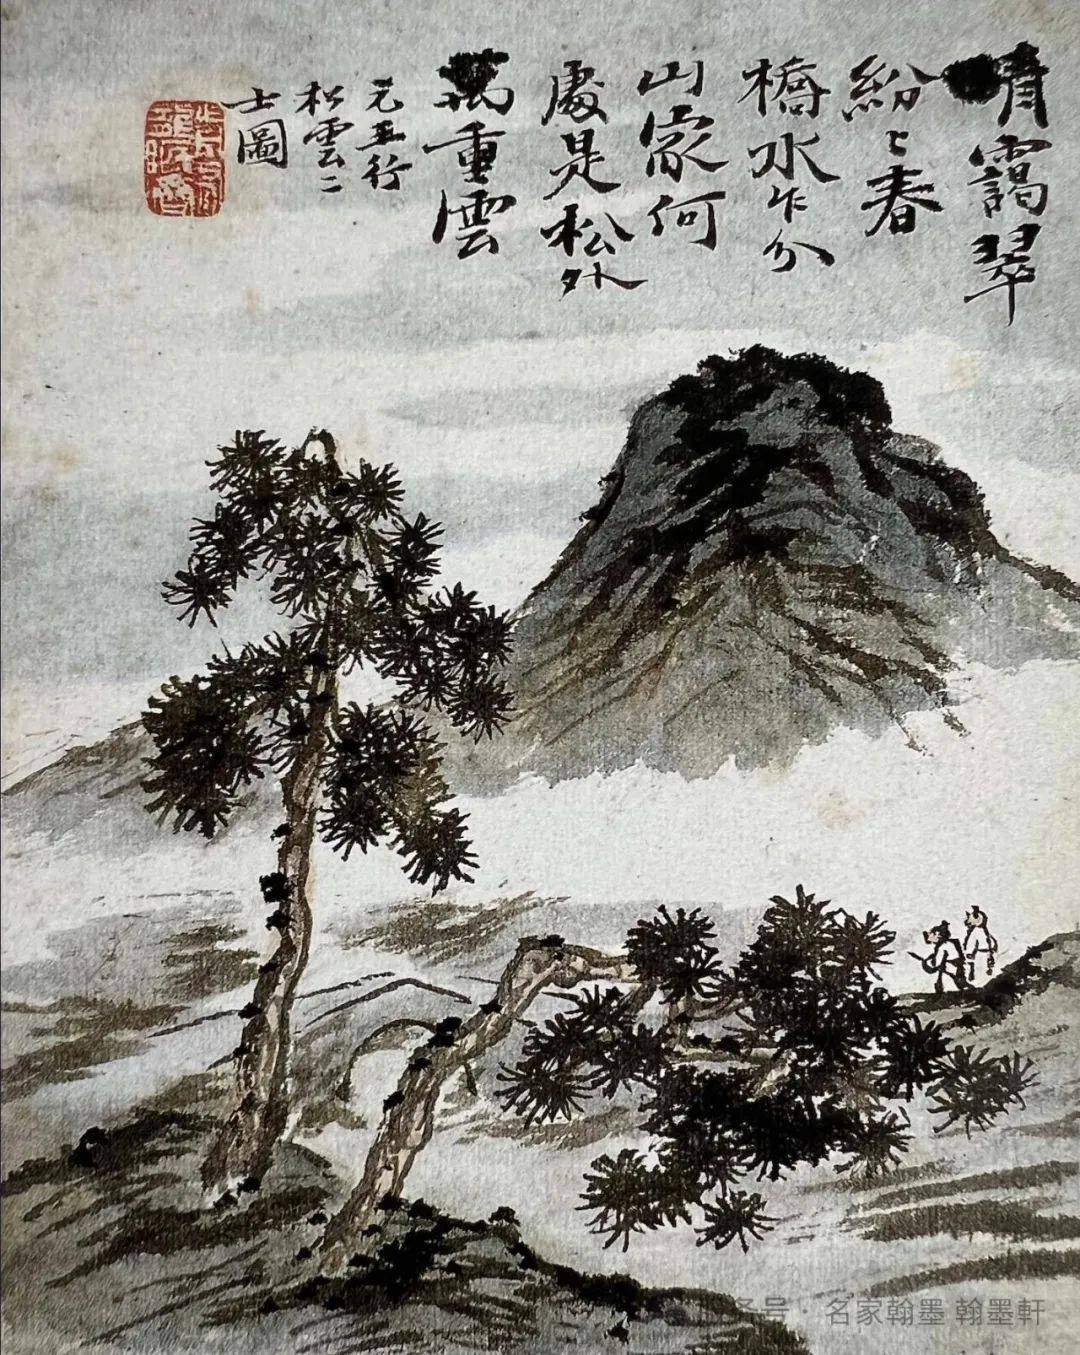 晴靄翠
紛〻春
橋水乍分
山家何
處是松外
萬重雲
元王行
松雲二
士圖
号 · 名家翰墨 翰墨軒